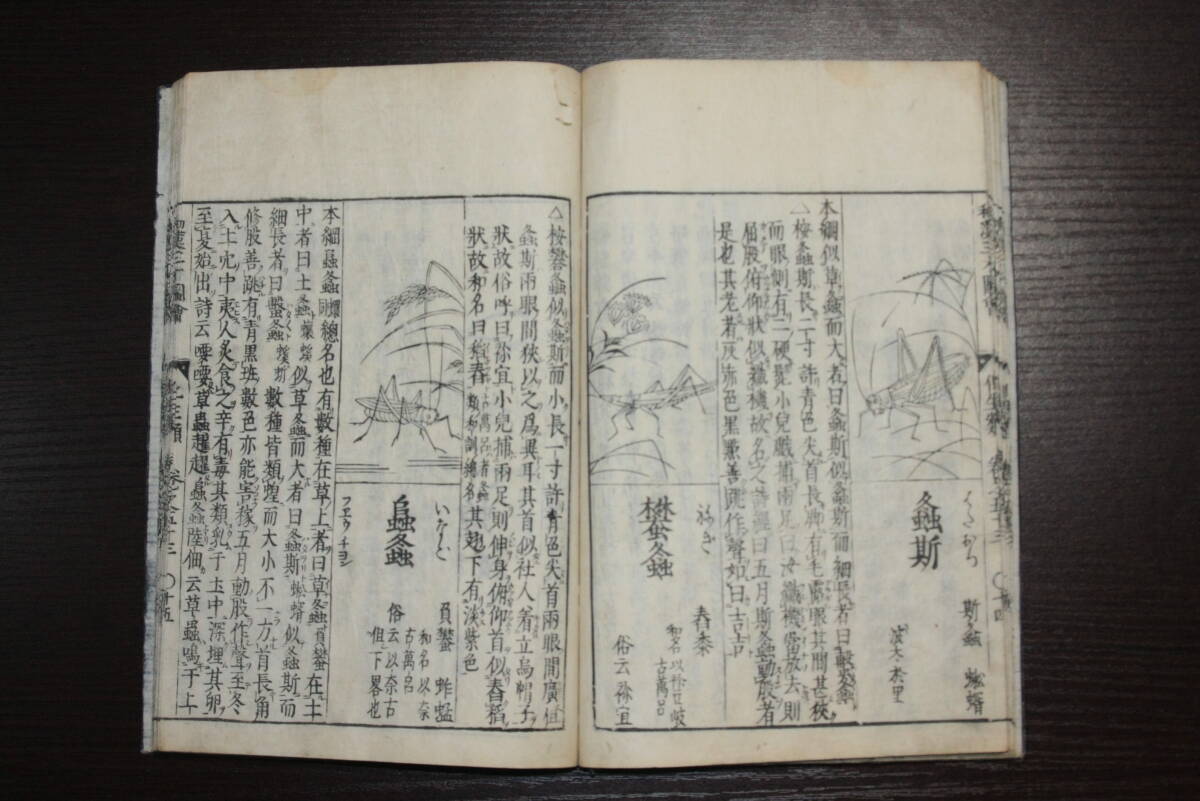 螽斯
はたおり
斯螽 蜙蝑
波太於里
本綱似草螽而大者曰螽斯似螽斯而細長者曰蟿螽
△按螽斯長二寸許青色尖首長脚有毛露眼其間甚狹
而眼側有二硬鬚小兒戲捕兩足曰汝織機當放去則
屈股俯仰狀似織機故名之詩豳曰五月斯螽動股者
是也其老者灰赤色黑斑善跳作聲如曰吉吉
蠜螽
ねぎ
舂黍
和名以祢豆岐
古萬呂
俗云祢宜
△按蠜螽似螽斯而小長一寸許青色尖首兩眼間廣但
螽斯兩眼間狹以之爲異耳其首似社人着立烏帽子
狀故俗呼曰祢宜小兒捕兩足則伸身俯仰首似舂稻
狀故和名曰稻舂古萬呂者螽類和訓總名其翅下有淡紫色
𧒂螽
いなご
フエウ チヨン
負蠜 蚱蜢
和名以奈
古萬呂
俗云以奈古
但下畧也
本綱𧒂螽總名也有數種在草上者曰草螽負蠜在土
中者曰土螽蠰螇似草螽而大者曰螽斯蜙蝑似螽斯而
細長者曰蟿螽螇蚸數種皆類蝗而大小不一方首長角
修股善跳有青黑斑數色亦能害稼五月動股作聲至冬
入土穴中夷人炙食之辛有毒其類乳于土中深埋其卵
至夏始出詩云喓喓草蟲趯趯𧒂螽陸佃云草蟲鳴于上
和漢三才圖會